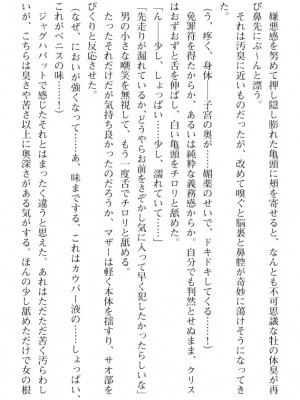 嫌悪感を努めて押し隠し膨れた亀頭に頬を寄せると、なんとも不可思議な牡の体臭が再
び鼻先にぷ〜んと漂う。
それは汚臭に近いものだったが、改めて嗅ぐと脳裏と鼻腔が奇妙に蕩けそうになってき
(う、疼く、身体――子宮の奥が……媚薬のせいで、ドキドキしてくる……!)
免罪符を得たからか、あるいは純粋な義務感からか。自分でも判然とせぬまま、クリス
はおずおずと舌を伸ばし、白い亀頭をチロリと舐めた。
「ん……少し、しょっぱい……少し、濡れていて……」
「先走りが漏れているか、どうやらお前をさぞかし気に入って早く犯したかったらしいな」
男の小さな嘲笑を無視して、もう一度舌でチロリと舐める。
たったそれだけだが気持ち良かったのだろうか、マザーは軽く本体を揺すり、サオ部を
びくりと反応させた。
(なぜ、においが強くなって……あ、味までする、これはカウパー液の……しょっぱい、
これがペニスの味……!)
ジャグハバットで感じたそれとはまったく違うと思えた。あれはただただ苦く汚らわし
いが、こちらは臭さや苦さ以上に奥深さがある気がする。ほんの少し舐めただけで女の根